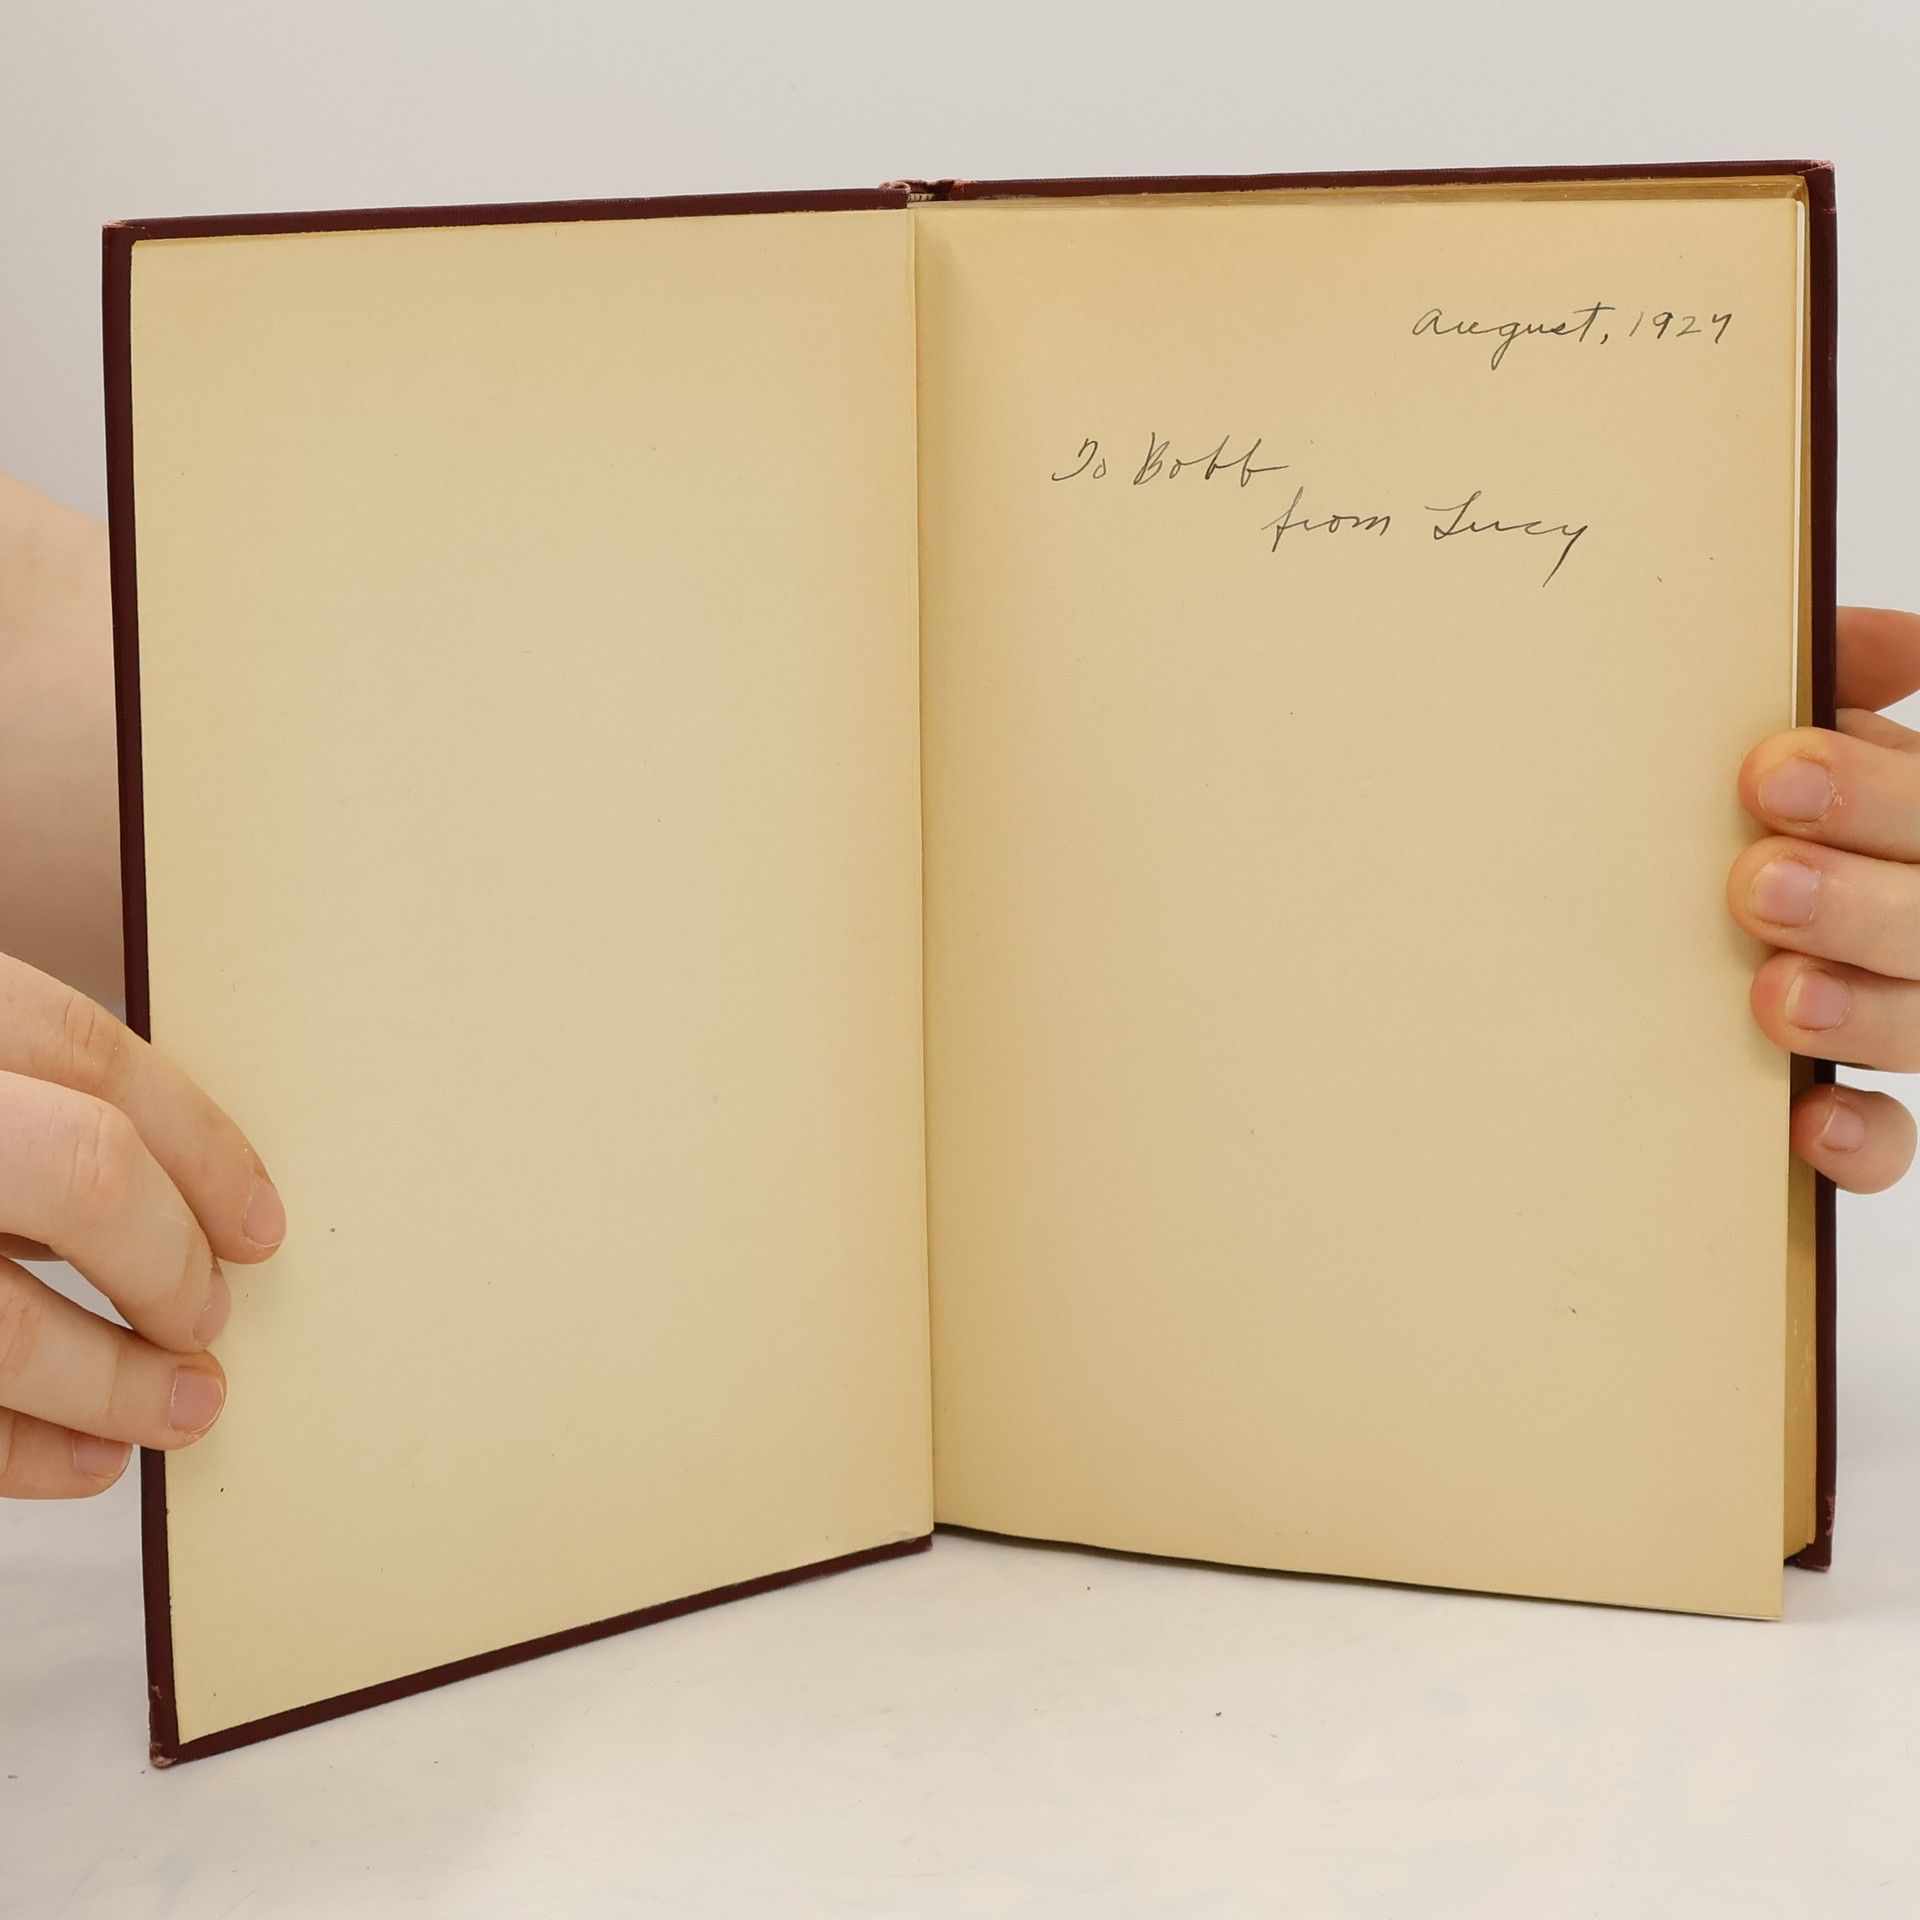 August, 1927
To Bobb
from Lucy